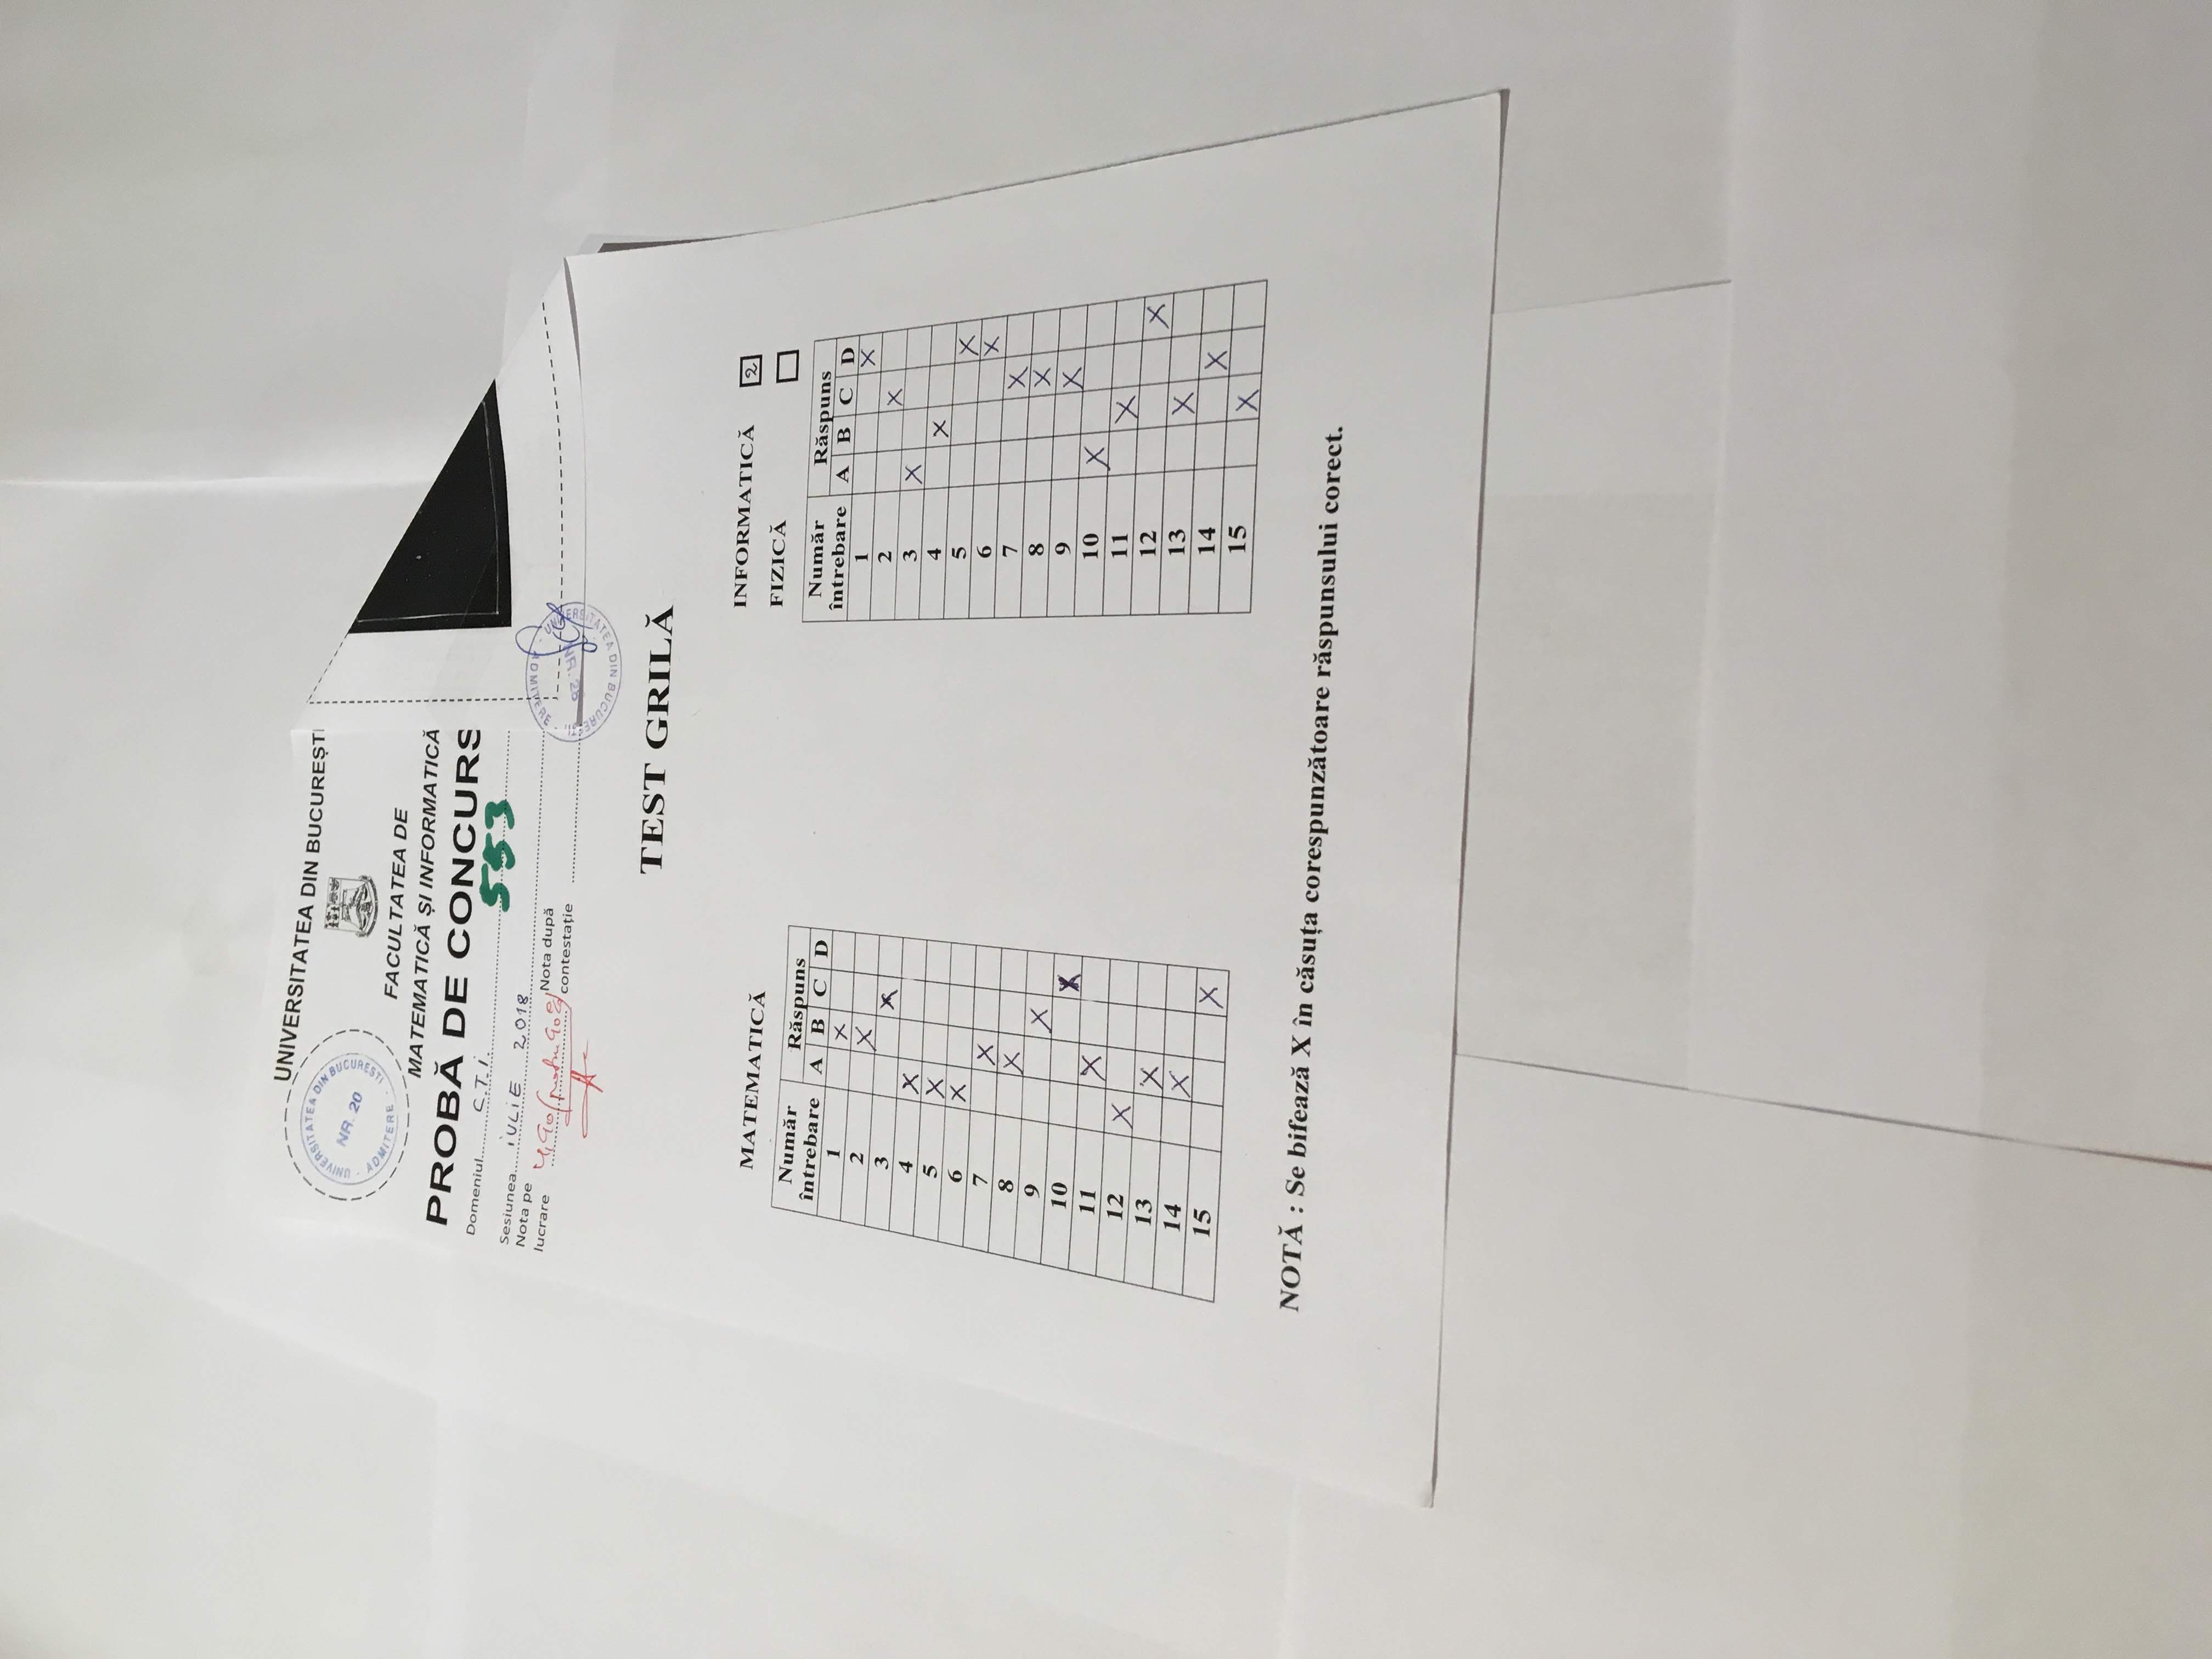 UNIVERSITATEA DIN BUCUREȘTI
UNIVERSITATEA DIN BUCUREȘTI
NR. 20
ADMITERE
FACULTATEA DE
MATEMATICĂ ȘI INFORMATICĂ
PROBĂ DE CONCURS
Domeniul C.T.I.
553
Sesiunea IULIE 2018
Nota pe
lucrare 4,90
Nota după
contestație
UNIVERSITATEA DIN BUCUREȘTI
ADMITERE
TEST GRILĂ
MATEMATICĂ
Număr întrebare Răspuns
A B C D
1 X
2 X
3 X
4 X
5 X
6 X
7 X
8 X
9 X
10 X
11 X
12 X
13 X
14 X
15 X
INFORMATICĂ 2
FIZICĂ
Număr întrebare Răspuns
A B C D
1 X
2 X
3 X
4 X
5 X
6 X
7 X
8 X
9 X
10 X
11 X
12 X
13 X
14 X
15 X
NOTĂ : Se bifează X în căsuța corespunzătoare răspunsului corect.